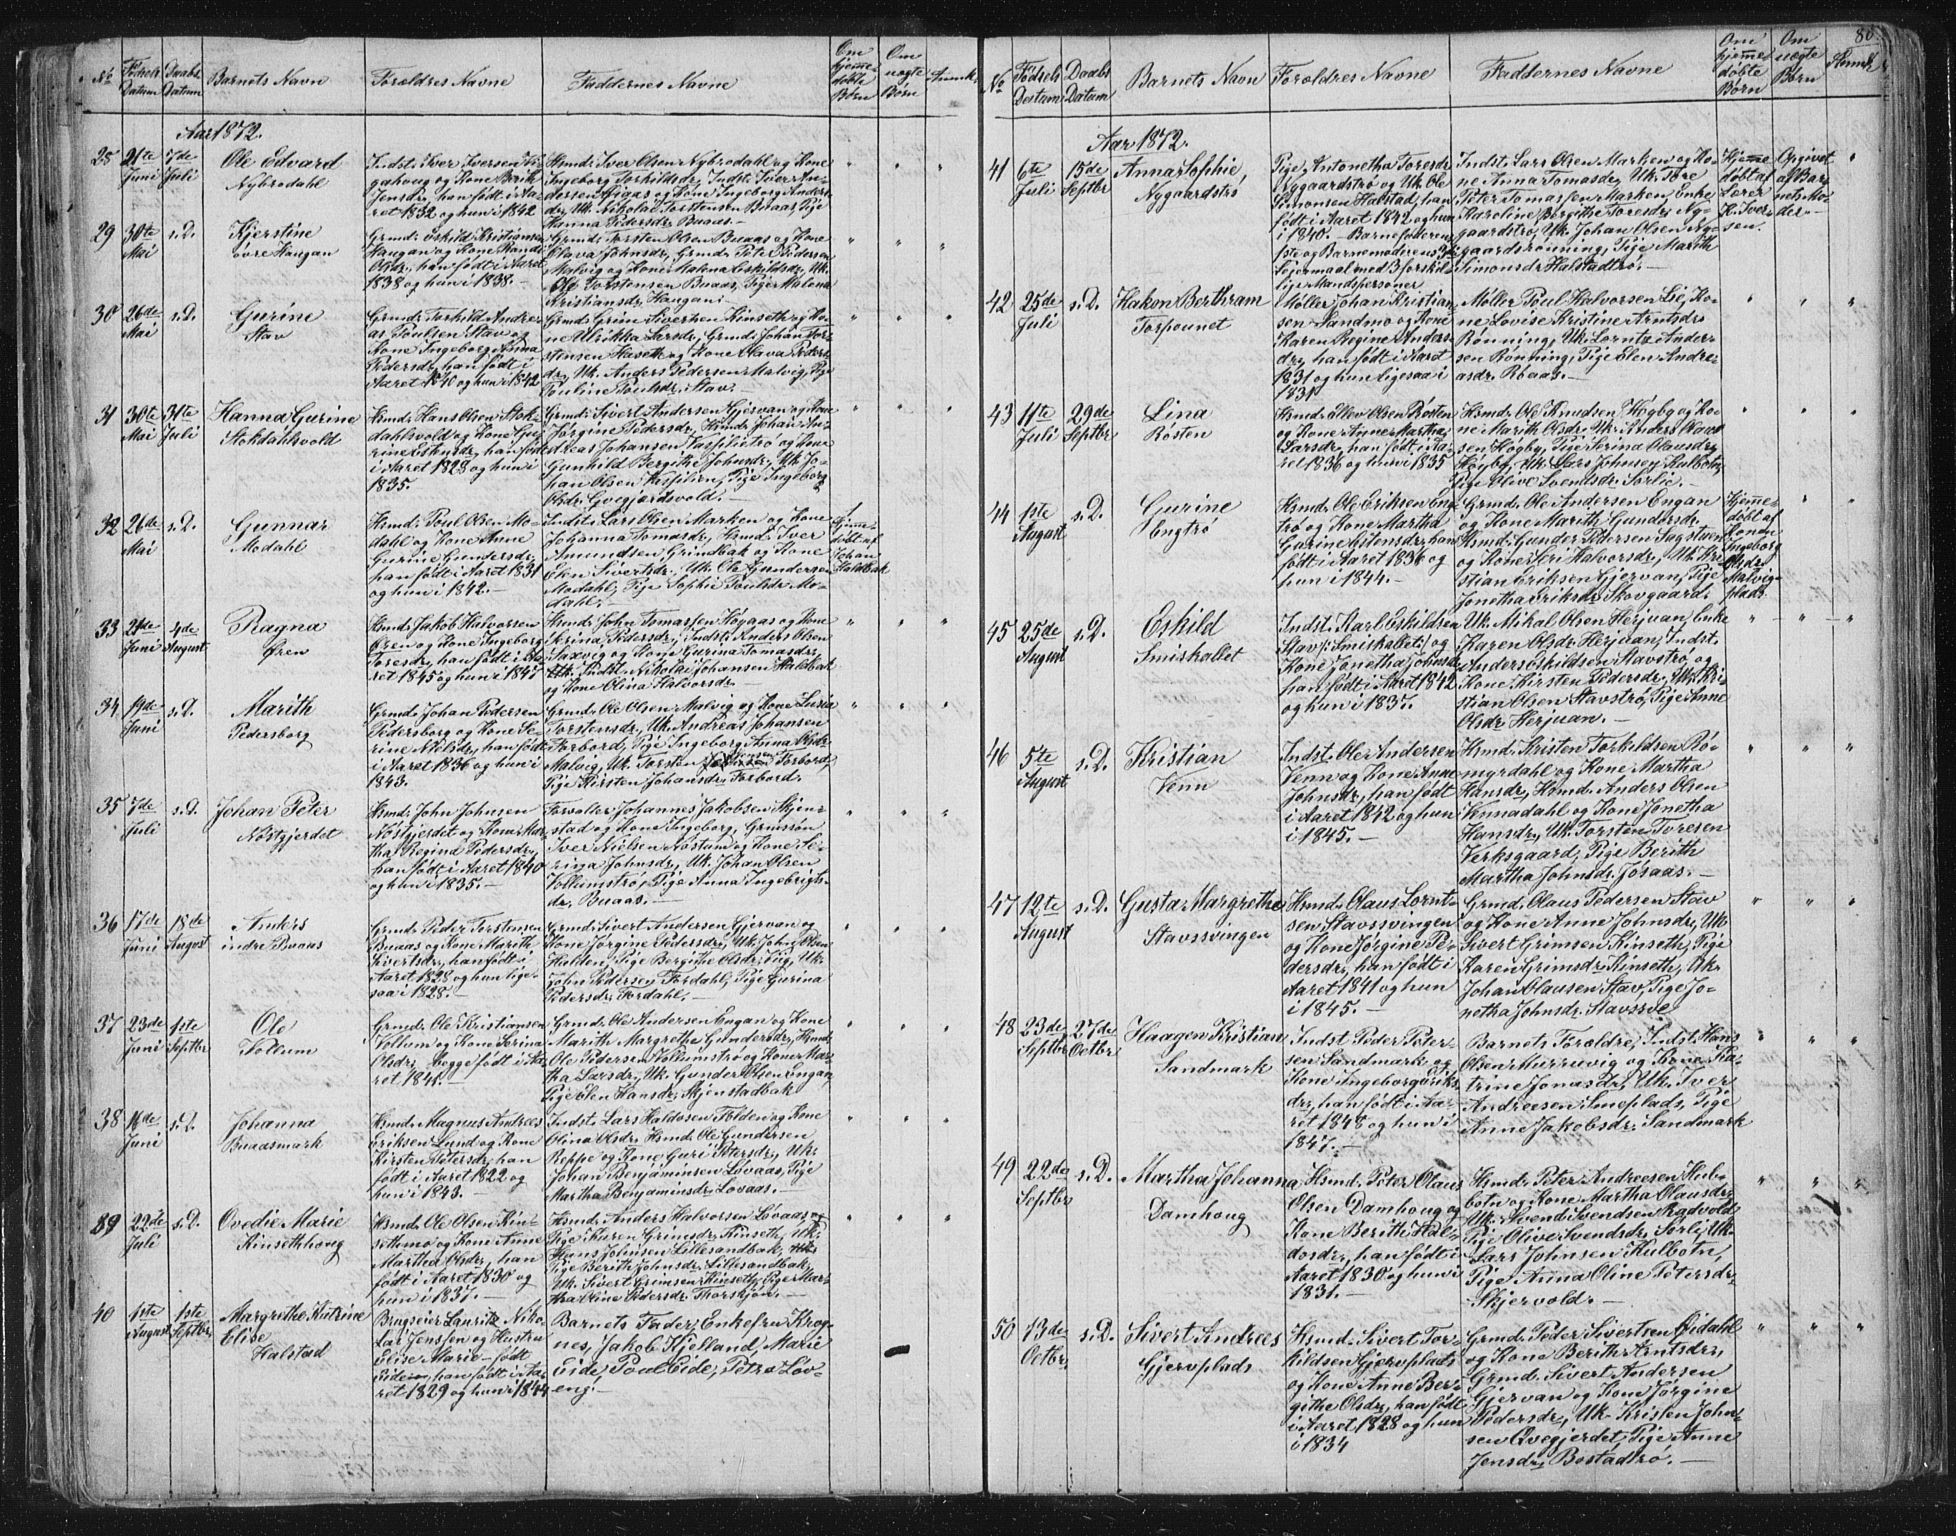 80
No
Fødsels Datum
Daabs Datum
Barnets Navn
Forældres Navne
Faddernes Navne
Om hjemmedøbte Børn
Om uægte Børn
Anmk.
Aar 1872.
28
21te Juni
7de Juli
Ole Edvard
Nybrodahl
Indst. Iver Iversen
og Kone Berit
Jensdr, han født i Aa-
ret 1832 og hun i 1842
Hsmd. Iver Olsen Nybrodahl og Kone
Ingeborg Torkildsdr, Indst. Peter An-
dersen Gjaas og Kone Ingeborg Anders-
dr, Uk. Nikolai Torstensen Buaas, Pige
Hanna Pedersdr Buaas.
29
30te Mai
s.D.
Kjerstine
øvre Haugan
Grmd. Eskild Kristiansen
Haugan og Kone Randi
Olsdr, han født i Aaret
1838 og hun i 1838.
Grmd. Torsten Olsen Buaas og Kone
Olava Johnsdr, Grmd. Peter Pedersen
Malvig og Kone Malena Eskildsdr, Uk.
Ole Torstensen Buaas, Pige Malena
Kristiansdr Haugan.
30
26de Mai
s.D.
Gurine
Stav
Grmd. Torkild Andre-
as Poulsen Stav og
Kone Ingeborg Anna
Pedersdr, han født i
Aaret 1840 og hun i 1842
Grmd. Grim Sivertsen Kinseth og Ko-
ne Ulrikka Larsdr, Grmd. Johan Tor-
stensen Hasetl og Kone Olava Peders-
dr, Uk. Anders Pedersen Malvig, Pige
Pouline Poulsdr Stav.
31
30te Mai
31te Juli
Hanna Gurine
Stokdahlsvold
Hsmd. Hans Olsen Stok-
dahlsvold og Kone Gu-
rine, han født
i Aaret 1828 og hun i
1835.
Grmd. Sivert Andersen Gjervan og Kone
Jørgine Pedersdr, Hsmd. Johan An-
dreas Johansen og Kone
Gunhild Bergithe Johnsdr, Uk. Jo-
han Olsen, Pige Ingeborg
Olsdr.
32
26de Mai
s.D.
Gunnar
Modahl
Hsmd. Poul Olsen Mo-
dahl og Kone Anne
Gurine Gundersdr,
han født i Aaret 1831
og hun i 1842.
Indst. Lars Olsen Marken og Kone
Johanna Tomasdr, Hsmd. Iver
Amundsen Grindbak og Kone
Elen Sivertsdr, Uk. Ole Gundersen
Modahl, Pige Sophi Poulsdr Mo-
dahl.
Hjemme-
døbt af
Johan
33
21de Juni
4de August
Ragna
Øren
Hsmd. Jakob Halvorsen
Øren og Kone Ingeborg
Toresdr, han født i Aa-
ret 1845 og hun i 1847
Hsmd. John Tomassen Høgaas og Kone
Serina Pedersdr, Indst. Anders Olsen
Saxvig og Kone Gurina Tomasdr,
Indst. Nikolai Johansen
og Kone Olina Halvorsdr.
34
19de Juni
s.D.
Marith
Pedersborg
Grmd. Johan Pedersen
Pedersborg og Kone Se-
rine Nilsdr, han født
i Aaret 1836 og hun i
1843.
Grmd. Ole Olsen Malvig og Kone Lusia
Torstensdr, Uk. Andreas Johansen
Forbord, Pige Ingeborg Anna Olsdr
Malvig, Uk. Torsten Forbord,
Pige Kirsten Johansdr Forbord.
35
7de Juli
s.D.
Johan Peter
Nøstgjerdet
Hsmd. John Johnsen
Nøstgjerdet og Kone Mar-
tha Regine Pedersdr,
han født i Aaret 1840
og hun i 1835.
Forvalter Johannes Jakobsen Skjen-
stad og Kone Ingeborg, Grmssøn
Iver Nielsen Nøstum og Kone Se-
rina Johnsdr, Uk. Johan Olsen
Vollumstrø, Pige Anna Ingebrigts-
dr Buaas.
36
17de Juni
18de August
Anders
indre Buaas
Grmd. Peder Torstensen
Buaas og Kone Marith
Sivertsdr, han født i
Aaret 1828 og hun lige-
saa i 1828.
Grmd. Sivert Andersen Gjervan og
Kone Jørgine Pedersdr, Uk. John Olsen
Halden, Pige Bergithe Olsdr, Uk.
John Pedersen Fordahl, Pige Gurina
Pedersdr Fordahl.
37
23de Juni
1ste Septbr
Ole
Vollum
Grmd. Ole Kristiansen
Vollum og Kone Serina
Olsdr, begge født i Aa-
ret 1841.
Grmd. Ole Andersen Engan og Kone
Marith Margrethe Gundersdr, Hsmd.
Ole Pedersen Vollumstrø og Kone Mar-
tha Larsdr, Uk. Gunder Olsen Engan,
Pige Elen Hansdr Skjenstadbak
38
16de Juni
s.D.
Johanna
Buaasmark
Hsmd. Magnus Andreas
Eriksen Lund og Kone
Kirsten Petersdr, han
født i Aaret 1822 og
hun i 1843.
Indst. Lars Haldosen Folden og Kone
Olina Olsdr, Hsmd. Ole Gundersen
Reppe og Kone Guri Petersdr, Uk.
Johan Benjaminsen Løvaas, Pige
Martha Benjaminsdr Løvaas.
39
22de Juli
s.D.
Ovedie Marie
Kinsethhoug
Hsmd. Ole Olsen Kin-
sethmo og Kone Anne
Martha Olsdr, han
født i Aaret 1830 og
hun i 1837.
Hsmd. Anders Halvorsen Løvaas og
Pige Karen Grimsdr Kinseth, Uk.
Hans Johnsen Lillesandbak,
Pige Berith Johnsdr Lillesandbak,
Uk. Sivert Grimsen Kinseth, Pige Mar-
tha Oline Pedersdr Thorskjøn.
40
1ste August
1ste Septbr
Margrethe Katrine
Elise
Halstad
Brugseier Lauritz Niko-
lai Jenssen og Hustru
Elise Marie født
Eide, han født i Aa-
ret 1829 og hun i 1844
Barnets Fader, Enkefru Krog-
nes, Jakob Kjelland, Marie
Eide, Poul Eide, Petra Løv-
eng.
No
Fødsels Datum
Daabs Datum
Barnets Navn
Forældres Navne
Faddernes Navne
Om hjemmedøbte Børn
Om uægte Børn
Anmk.
Aar 1872.
41
6te Juli
15de Septbr
Anna Sophie,
Nygaardstrø
Pige Antonetha Toresdr
Nygaardstrø og Uk. Ole
Simonsen Halstad, han
født i Aaret 1842 og hun
i 1840. Barnefaderens
1ste og Barnemoderens 3die
Leiermaal med 3 forskjel-
lige Mandspersoner
Indst. Lars Olsen Marken og Ko-
ne Anna Tomasdr, Uk. Tore
Peter Tomassen Marken, Enke
Karoline Bergithe Toresdr Ny-
gaardstrø, Uk. Johan Olsen Ny-
gaardsrønning, Pige Marith
Simonsdr Halstadtrø.
Hjemme-
døbt af
Lærer
K. Iver-
sen.
Opgivet
af Bar-
nets Mo-
der
42
25de Juli
s.D.
Hakon Berthram
Torpounet
Møller Johan Kristian-
sen Sandmo og Kone
Karen Regine Anders-
dr, han født i Aaret
1831 og hun ligesaa i
1831
Møller Poul Halvorsen Lie, Ko-
ne Lovise Kristine Arntsdr
Rønning, Uk. Lorntz Ander-
sen Rønning, Pige Elen Andre-
asdr Roaas.
43
11te Juli
29de Septbr
Lina
Røsten
Hsmd. Ellev Olsen Røsten
og Kone Anne Martha
Larsdr, han født i Aa-
ret 1836 og hun i 1835
Hsmd. Ole Knudsen Høgby og Ko-
ne Marith Olsdr, Uk. Anders Olav-
sen Høgby, Pige Serina Olausdr
Høyby, Uk. Lars Johnsen Kulbotn,
Pige Olive Svendsdr Sørlie.
44
1ste August
s.D.
Gurine
Engtrø
Hsmd. Ole Eriksen Eng-
trø og Kone Martha
Gurine Estensdr, han
født i Aaret 1836 og
hun i 1844.
Grmd. Ole Andersen Engan
og Kone Marith Gundersdr,
Hsmd. Gunder Pedersen Sagstuen
og Kone Siri Halvorsdr, Uk. Kri-
stian Eriksen Gjervan, Pige
Jonetha Eriksdr Skovgaard.
Hjemme-
døbt af
Konen
Ingeborg
Olsdr
Malvig-
plads.
45
25de August
s.D.
Eskild
Smiskallet
Indst. Karl Eskildsen
Stav /: Smiskallet :/ og
Kone Jonetha Johnsdr
han født i Aaret 1842
og hun i 1837.
Uk. Mikal Olsen Herjuan, Enke
Karen Olsdr Herjuan, Indst.
Anders Eskildsen Stavstrø og
Kone Kirsten Pedersdr, Uk. Kri-
stian Olsen Stavstrø, Pige Anne
Olsdr Herjuan.
46
5te August
s.D.
Kristian
Venn
Indst. Ole Andersen
Venn og Kone Anne
Johnsdr, han født
i Aaret 1842 og hun
i 1845.
Hsmd. Kristen Torkildsen Rø-
myrdahl og Kone Martha
Hansdr, Hsmd. Anders Olsen
Vennadahl og Kone Jonetha
Hansdr, Uk. Torsten Toresen
Verksgaard, Pige Berith
Martha Johnsdr Jøsaas.
47
12te August
s.D.
Gusta Margrethe
Stavssvingen
Hsmd. Olaus Lornt-
sen Stavssvingen
og Kone Jørgine Pe-
dersdr, han født i
Aaret 1841 og hun
i 1845.
Grmd. Olaus Pedersen Stav
og Kone Anne Johnsdr, Uk.
Sivert Grimsen Kinseth, Pige
Karen Grimsdr Kinseth, Uk.
Johan Olausen Stav, Pige Jo-
netha Johnsdr Stavssve
48
23de Septbr
27de Octbr
Haagen Kristian
Sandmark
Indst. Peder Peter-
sen Sandmark og
Kone Ingeborg Eriks-
dr, han født i Aa-
ret 1848 og hun i
1847.
Barnets Forældre, Indst. Hans
Olsen Muruvig og Kone Ka-
trine Jonasdr, Uk. Iver
Andreesen Smeplads, Pige
Anne Jakobsdr Sandmark
49
22de Septbr
s.D.
Martha Johanna
Damhoug
Hsmd. Peter Olaus
Olsen Damhoug og
Kone Berith Hal-
dosdr, han født i
Aaret 1830 og hun i
1831.
Hsmd. Peter Andreesen Kul-
botn og Kone Martha Olausdr,
Uk. Svend Svendsen Rødvold,
Pige Olive Svendsdr Sørli, Uk.
Lars Johnsen Kulbotn,
Pige Anna Oline Petersdr
Skjervold.
50
13de Octbr
s.D.
Sivert Andrees
Gjervplads
Hsmd. Sivert Tor-
kildsen Gjervplads
og Kone Anne Ber-
githe Olsdr, han født
i Aaret 1828 og hun
i 1834
Grmd. Peder Sivertsen Ødidahl
og Kone Berith Arntsdr,
Grmd. Sivert Andersen
Gjervan og Kone Jørgine
Pedersdr, Uk. Kristen John-
sen Qvegjerdet, Pige Anne
Jensdr Bostadtrø.